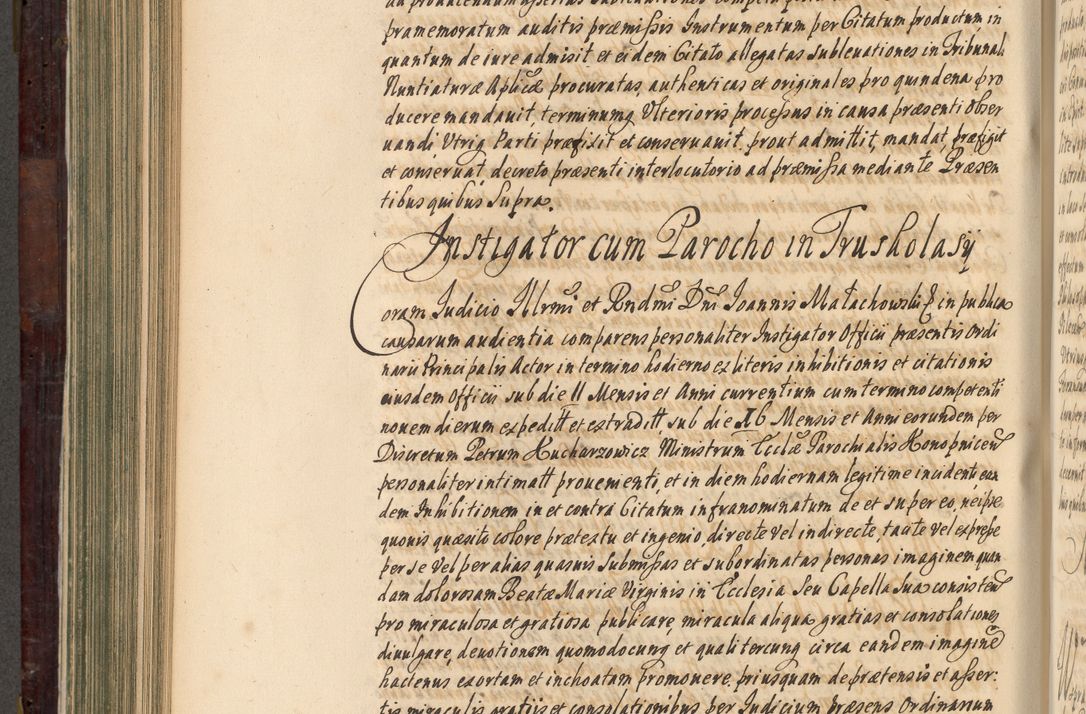 pramemoratum auditis præmissis Instrumentum per Citatum productum, in
quantum de iure admisit et eidem Citato allegatas sublevationes in Tribunali
Nuntiaturæ Aplicæ procuratas, authenticas et originales pro quindena pro
ducere mandauit, terminumq Vlterioris processus in causa præsenti obser
uandi Vtriq Parti præfixit et conseruauit, prout admittit, mandat, præfigit
et conseruat decreto præsenti interlocutorio ad præmissa mediante Præsen
tibus quibus Supra.
Instigator cum Parocho in Truskolasy
Coram Iudicio Illrmi et Rndmi Dni Ioannis Małachowski E in publica
causarum audientia comparens personaliter Instigator Officii præsentis Ordi
narii Principalis Actor in termino hodierno ex literis inhibitionis et citationis
eiusdem Officii sub die 11 Mensis et Anni currentium cum termino competenti
nouem dierum expeditt et extraditt, sub die 16 Mensis et Anni eorundem per
Discretum Petrum Kucharzowicz Ministrum Ecclæ Parochialis Konopnicen
personaliter intimatt prouementi, et in diem hodiernam legitime incidenti ean
dem Inhibitionem in et contra Citatum infranominatum de et super eo, ne ipse
quouis quæsito colore prætextu et ingenio, directe vel indirecte, tacite vel expresse
per se vel per alias quasuis submissas et subordinatas personas imaginem quan
dam dolorosam Beatæ Mariæ Virginis in Ecclesia seu Capella sua consisten
pro miraculosa et gratiosa publicare, miracula aliqua gratias et consolationes
diuulgare, deuotionem quomodocunq et qualitercunq circa eandem imagine
hactenus exortam et inchoatam promouere, priusquam de prætensis et asser:
tis miraculis gratiis et consolationibus per Iudicium præsens Ordinarium